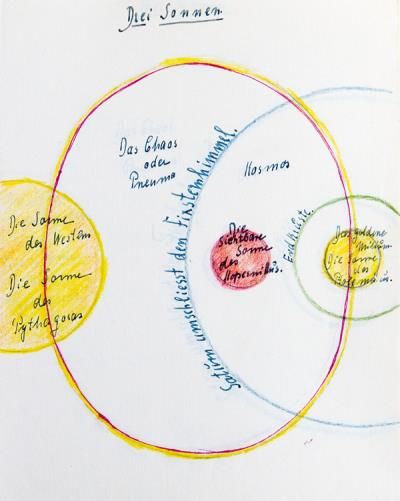 Drei Sonnen
Das Chaos
oder
Pneuma
Kosmos
Saturn umschliesst den Fixsternhimmel.
Die Sonne
des Westens
Die Sonne
des
Pythagoras
Die
sichtbare
Sonne
des
Kopernikus.
Das goldene
Die Sonne
des
Ptolemäus.